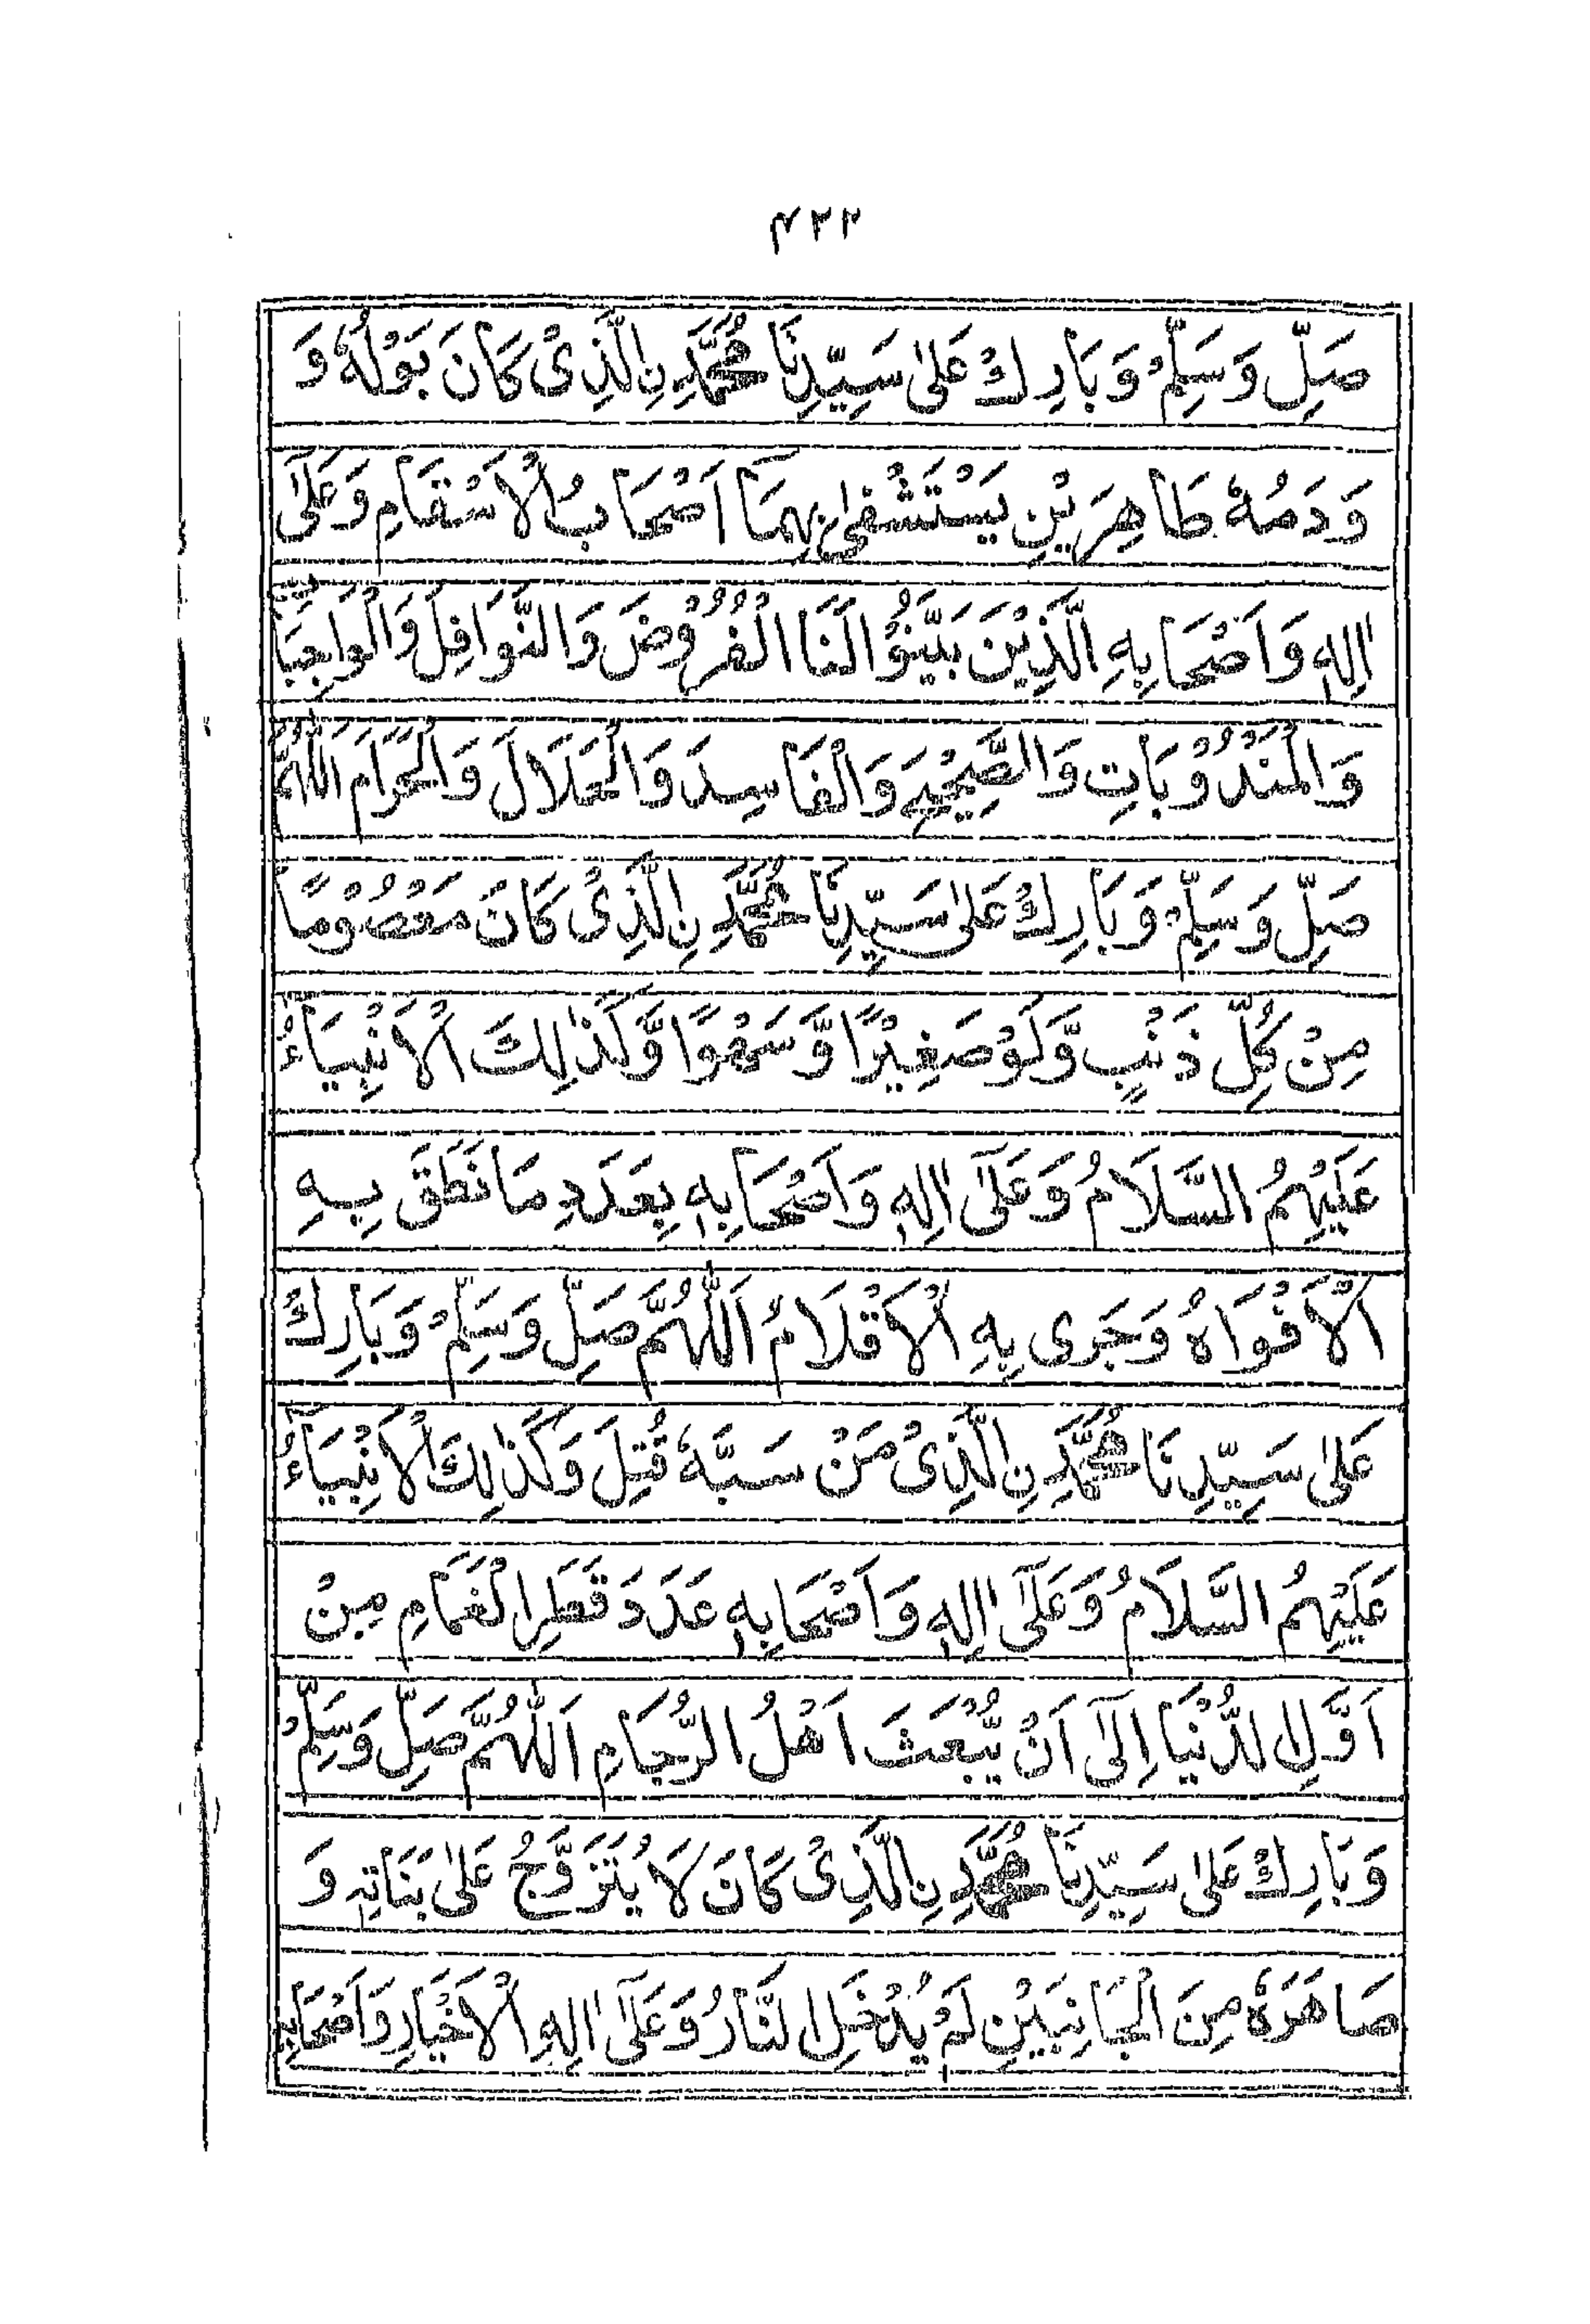 ۴۲۲
صَلِّ وَسَلِّمْ وَبَارِكْ عَلٰى سَيِّدِنَا مُحَمَّدِنِ الَّذِىْ كَانَ بَوْلُهٗ وَ
وَدَمُهٗ طَاهِرَيْنِ يَسْتَشْفٰى بِهِمَآ اَصْحَابُ الْاَسْقَامِ وَعَلٰٓى
اٰلِهٖ وَاَصْحَابِهِ الَّذِيْنَ بَيَّنُوْا لَنَا الْفُرُوْضَ وَالنَّوَافِلَ وَالْوَاجِبَاتِ
وَالْمَنْدُوْبَاتِ وَالصَّحِيْحَ وَالْفَاسِدَ وَالْحَلَالَ وَالْحَرَامَ اَللّٰهُمَّ
صَلِّ وَسَلِّمْ وَبَارِكْ عَلٰى سَيِّدِنَا مُحَمَّدِنِ الَّذِىْ كَانَ مَعْصُوْمًا
مِنْ كُلِّ ذَنْبٍ وَّلَوْ صَغِيْرًا وَّسَهْوًا وَّكَذٰلِكَ الْاَنْبِيَآءُ
عَلَيْهِمُ السَّلَامُ وَعَلٰٓى اٰلِهٖ وَاَصْحَابِهٖ بِعَدَدِ مَا نَطَقَ بِهِ
الْاَفْوَاهُ وَجَرٰى بِهِ الْاَقْلَامُ اَللّٰهُمَّ صَلِّ وَسَلِّمْ وَبَارِكْ
عَلٰى سَيِّدِنَا مُحَمَّدِنِ الَّذِىْ مَنْ سَبَّهٗ قُتِلَ وَكَذٰلِكَ الْاَنْبِيَآءُ
عَلَيْهِمُ السَّلَامُ وَعَلٰٓى اٰلِهٖ وَاَصْحَابِهٖ عَدَدَ قَطَرِ الْغَمَامِ مِنْ
اَوَّلِ الدُّنْيَا اِلٰٓى اَنْ يُّبْعَثَ اَهْلُ الرِّجَامِ اَللّٰهُمَّ صَلِّ وَسَلِّمْ
وَبَارِكْ عَلٰى سَيِّدِنَا مُحَمَّدِنِ الَّذِىْ كَانَ لَا يُتَزَوَّجُ عَلٰى بَنَاتِهٖ وَ
صَاهَرَهٗ مِنَ الْجَانِبَيْنِ لَمْ يَدْخُلِ النَّارُ وَعَلٰٓى اٰلِهِ الْاَخْيَارِ وَاَصْحَابِهِ